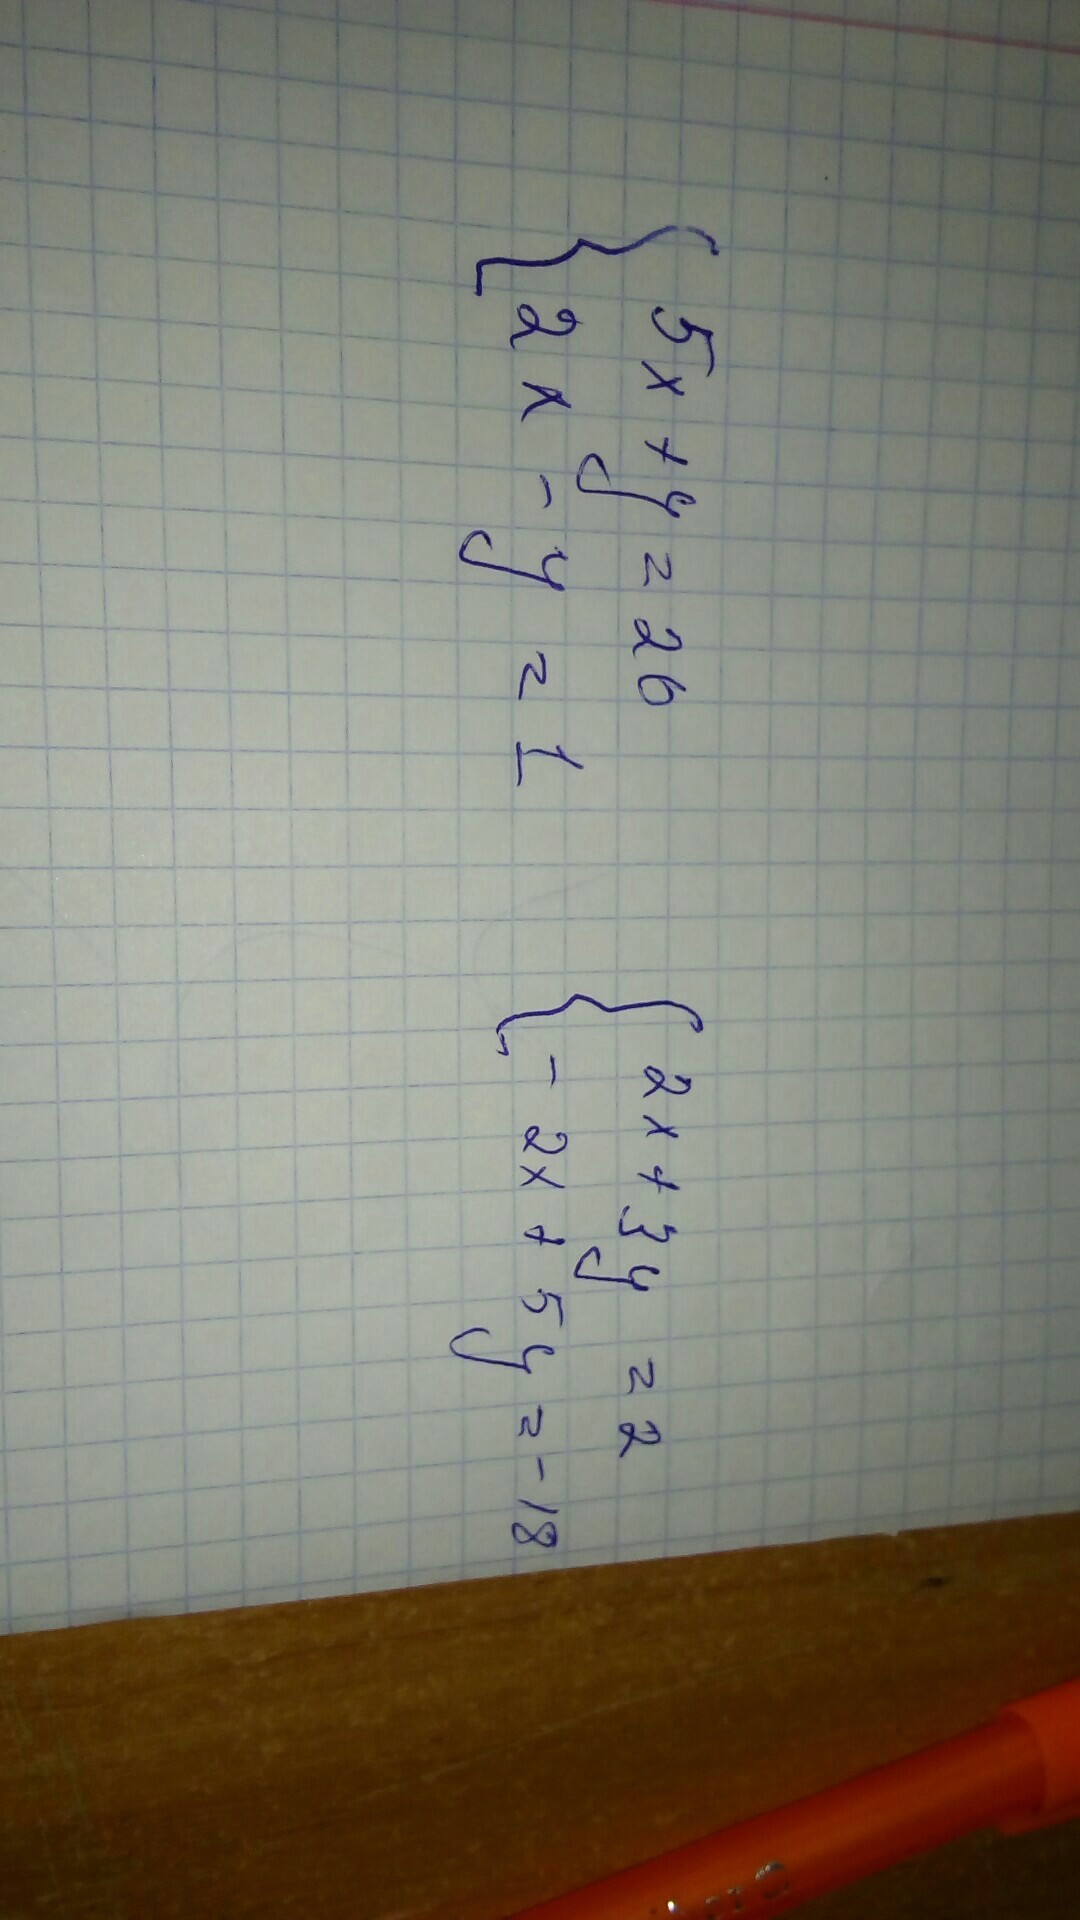 5x + y = 26
2x - y = 1
2x + 3y = 2
- 2x + 5y = - 18